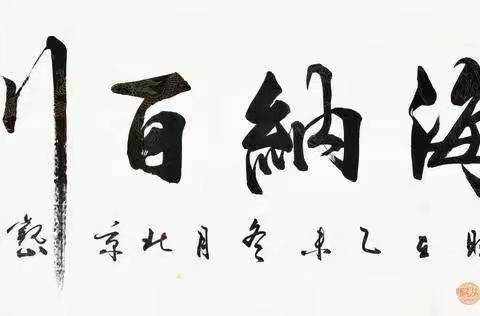 海納百川
时在乙未冬月北京